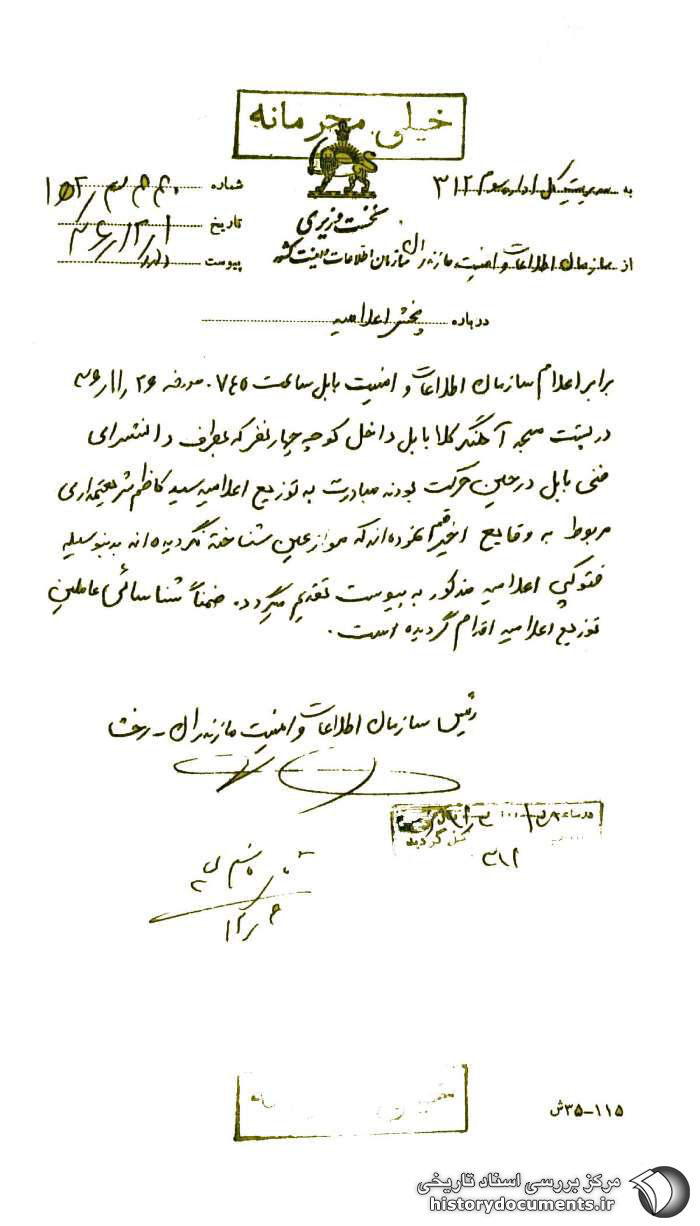 خیلی محرمانه
به مدیریت کل اداره سوم ۳۱۲
شماره
نخست وزیری
تاریخ
از سازمان اطلاعات و امنیت مازندران
سازمان اطلاعات و امنیت کشور
پیوست دارد
درباره پخش اعلامیه
برابر اعلام سازمان اطلاعات و امنیت بابل ساعت ۰۷۴۵ مورخه ۲۶ ر۱۱ر۳۶
در پشت مسجد آهنگرکلا بابل داخل کوچه چهار نفر که بطرف دانشسرای
فنی بابل در حین حرکت بودند مبادرت به توزیع اعلامیه سید کاظم شریعتمداری
مربوط به وقایع اخیر قم نموده‌اند که موزعین شناخته نگردیده‌اند بدینوسیله
فتوکپی اعلامیه مذکور به پیوست تقدیم میگردد. ضمناً شناسائی عاملین
توزیع اعلامیه اقدام گردیده است.
رئیس سازمان اطلاعات و امنیت مازندران ـ رخشا
۳۱۲
۳۵ـ۱۱۵ش
مرکز بررسی اسناد تاریخی
historydocuments.ir